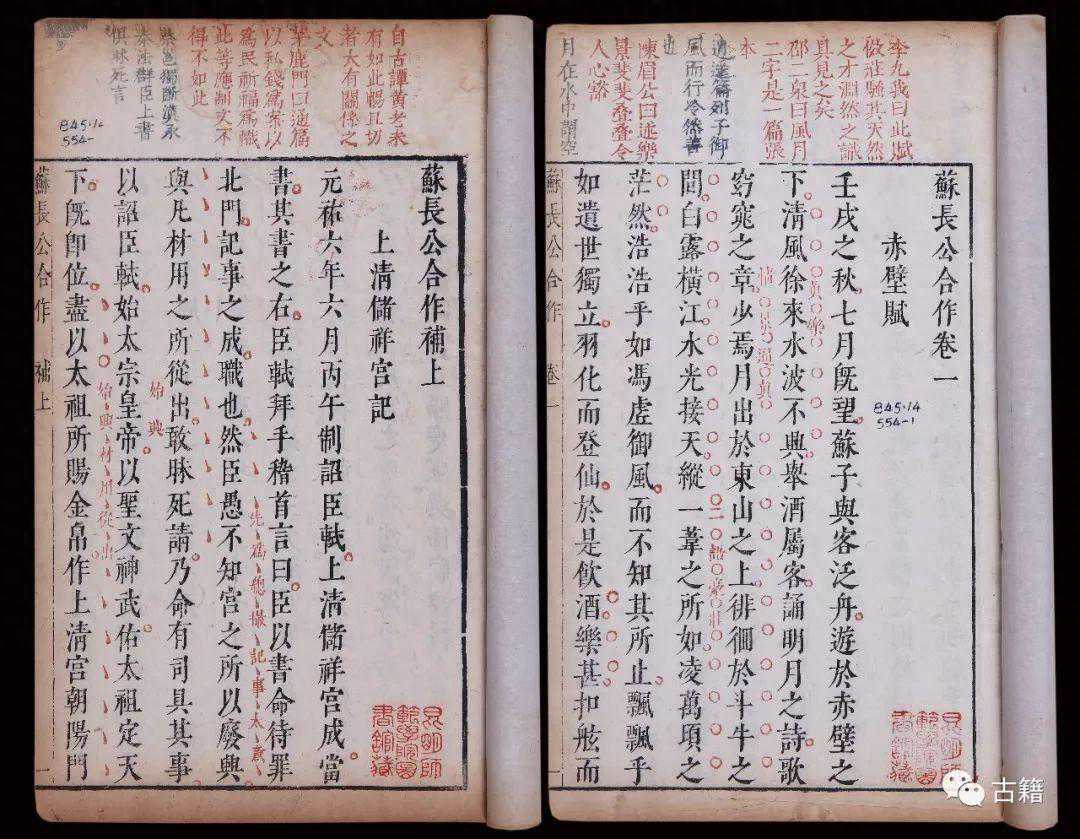 李九我曰此賦
倣莊騷其天然
之才淵然之識
真見之矣
邵二泉曰風月
二字是一篇張
本
逍遙篇列子御
風而行冷然善
也
陳眉公曰述樂
景斐斐疊疊令
人心豁
月在水中謂空
蘇長公合作卷一
赤壁賦
壬戌之秋七月既望蘇子與客泛舟遊於赤壁之
下清風徐來水波不興舉酒屬客誦明月之詩歌
真樂
窈窕之章少焉月出於東山之上徘徊於斗牛之
情景逼真
間白露橫江水光接天縱一葦之所如凌萬頃之
二語豪壯
茫然浩浩乎如馮虛御風而不知其所止飄飄乎
如遺世獨立羽化而登仙於是飲酒樂甚扣舷而
蘇長公合作 卷一 一
845.14
554-1
昆明師
範學院圖
書館藏
古籍
自古譚黃老未
有如此暢且切
者大有關係之
文
茅鹿門曰通篇
以私錢為案以
為民祈福為幟
此等應制文不
得不如此
蔡邕獨斷漢承
秦法群臣上書
俱昧死言
845.14
554-
蘇長公合作補上
上清儲祥宮記
元祐六年六月丙午制詔臣軾上清儲祥宮成當
書其書之右臣軾拜手稽首言曰臣以書命待罪
先為總撮記事大意
北門記事之成職也然臣愚不知宮之所以廢興
與凡材用之所從出敢昧死請乃命有司具其事
始興
以詔臣軾始太宗皇帝以聖文神武佑太祖定天
始興材用從出
下既即位盡以太祖所賜金帛作上清宮朝陽門
蘇長公合作 補上 一
昆明師
範學院圖
書館藏